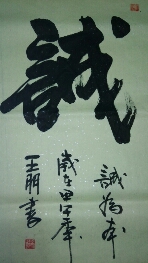 誠
誠為本
歲在年
王朋書